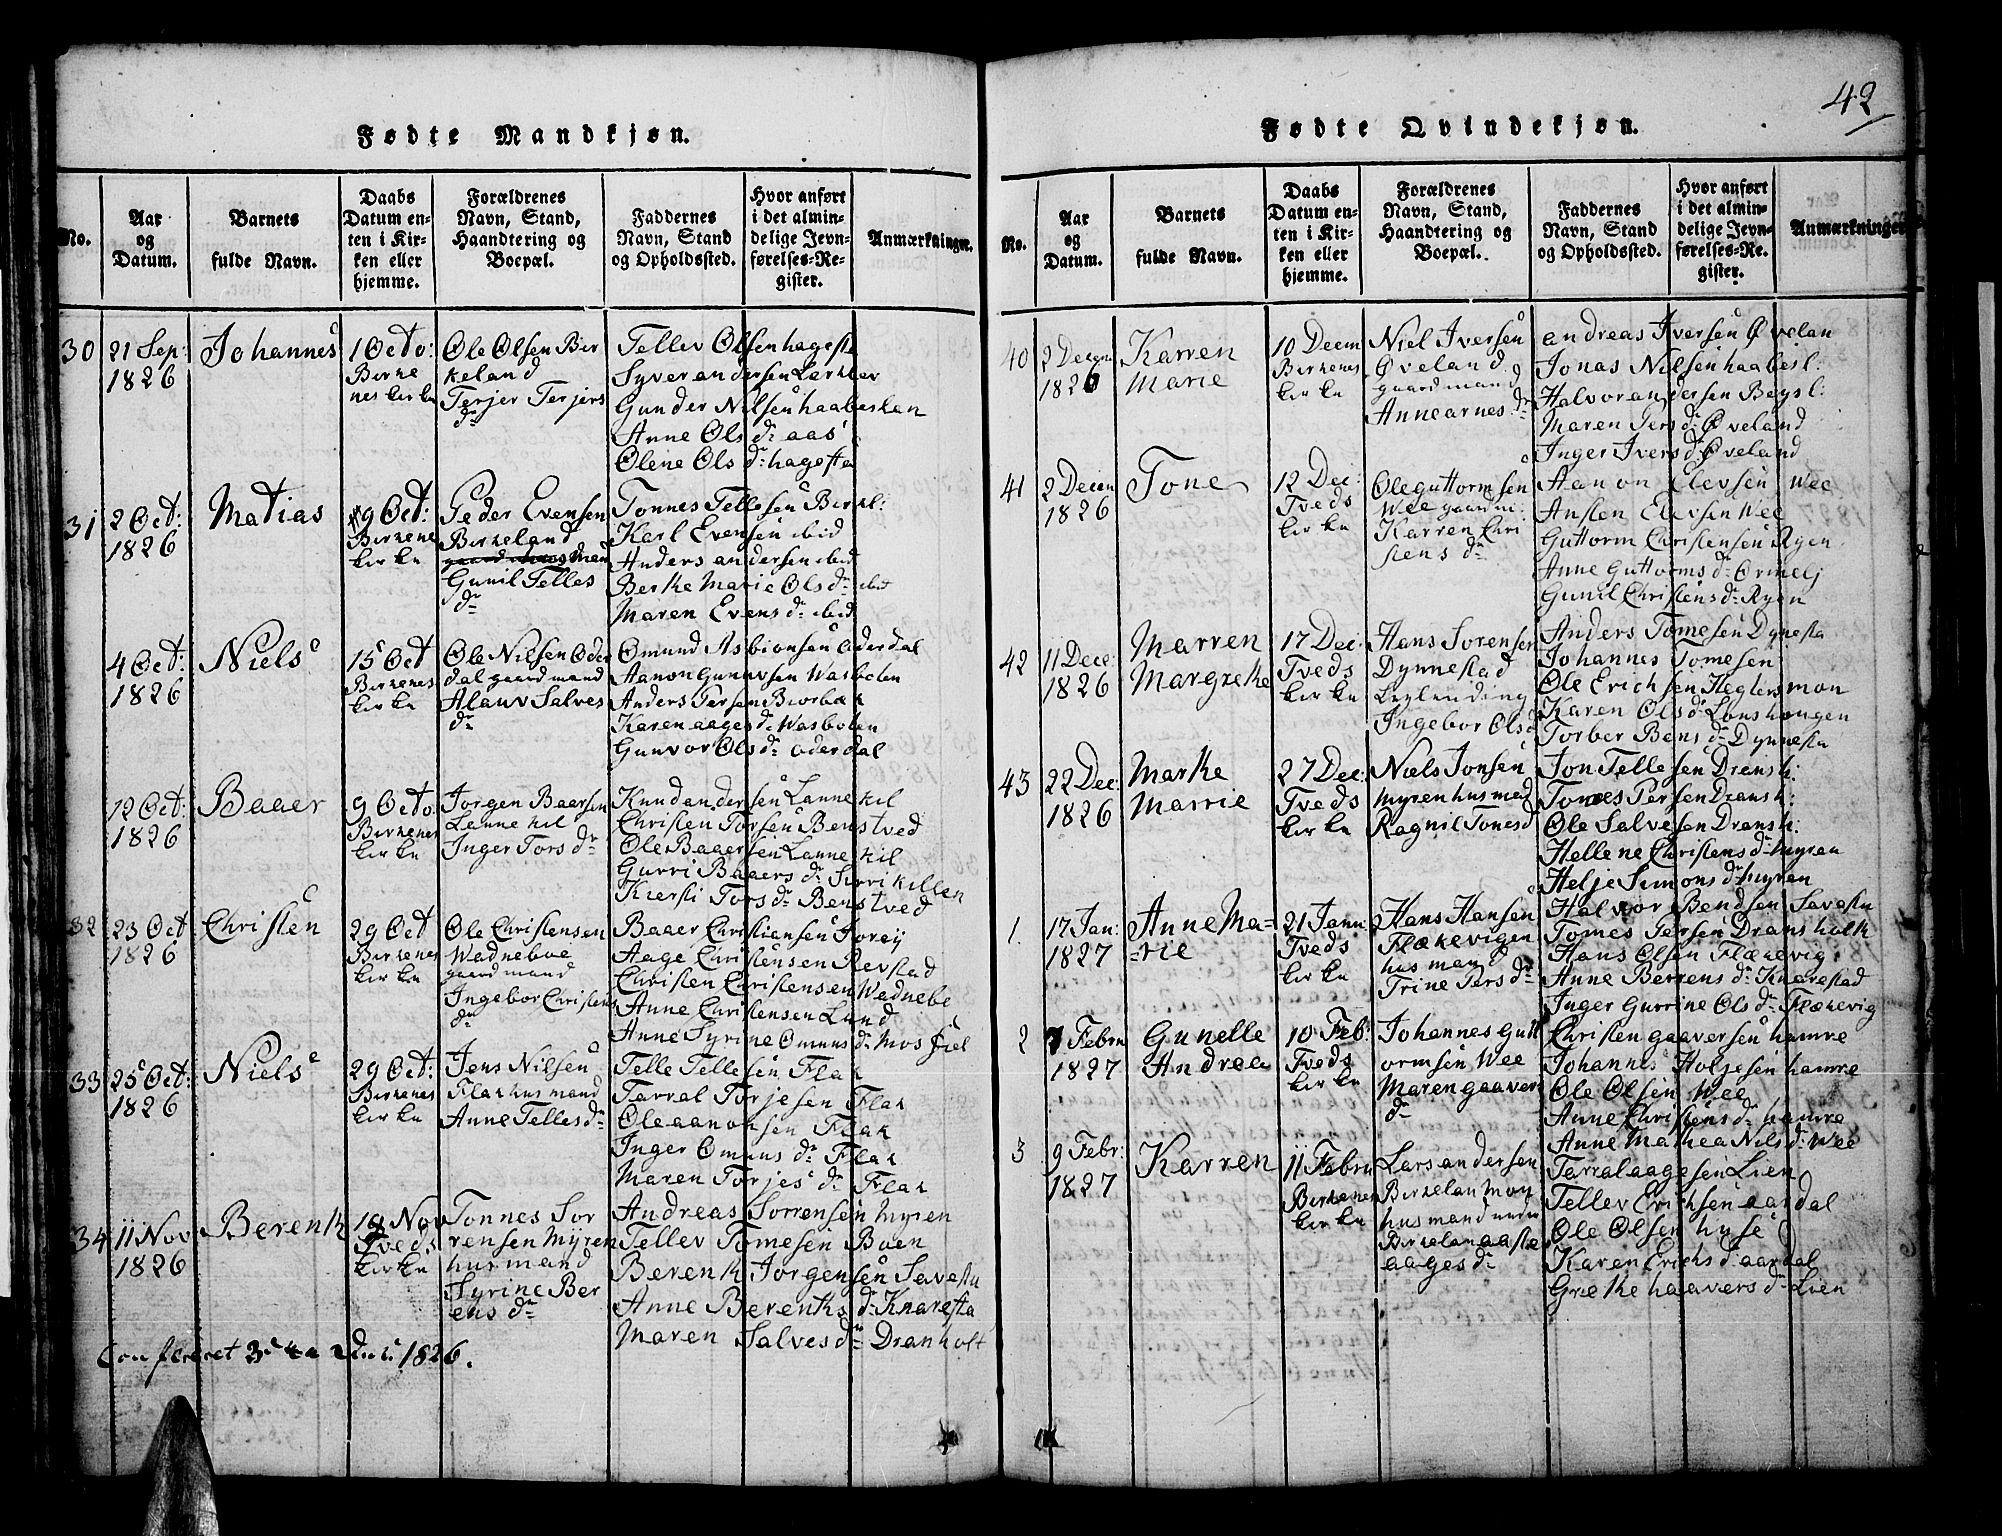 42
Fødte Mandkjøn.
No.
Aar og Datum.
Barnets fulde Navn.
Daabs Datum enten i Kirken eller hjemme.
Forældrenes Navn, Stand, Haandtering og Boepæl.
Faddernes Navn, Stand og Opholdssted.
Hvor anført i det almindelige Jevnførelses-Register.
Anmærkninger.
30
21 Sep:
1826
Johannes
1 Octo:
Birke
nes kirke
Ole Olsen Bir
keland
Terjer Terjers
dr
Tellev Olsen hageste
Syver andersen Lerkler
Gunder Nilsen haabesken
Anne Ols dr aas
Olene Ols dr: hageste
31
2 Oct:
1826
Matias
9 Oct:
Birkene
kirke
Peder Evensen
Birkeland
Gunil Telles
dr
Tonnes Tellesen Birkl:
Karl Evensen ibid
Anders andersen ibid
Berke Marie Ols dr ibid
Maren Evens dr ibid
4 Oct:
1826
Niels
15 Oct
Birkenes
kirke
Ole Nilsen Oder
dal gaardmand
Alauv Salves
dr
Omund Asbionsen oderdal
Aanon Gunuvsen Wasbolen
Anders Tersen Biorbak
Karen aages dr Wasbolen
Gunvor Ols dr oderdal
12 Oct:
1826
Baaer
9 Octo
Birkenes
kirke
Jorgen Baarsen
Lanne kil
Inger Tors dr
Knud andersen Lanne kil
Christen Torsen Benstved
Ole Baaersen Lanne kil
Gurri Baaers dr Sirrikillen
Kiersti Tors dr Benstved
32
23 Oct
1826
Christen
29 Oct
Birkenes
kirke
Ole Christensen
Wadneboe
gaardmand
Ingebor Christens
dr
Baaer Christiansen
Aage Christensen Revstad
Christen Christensen Wadnebe
Anne Christensen Lund
Anne Syrine Omuns dr Mosfiel
33
25 Oct:
1826
Niels
29 Oct:
Birkenes
kirke
Jens Nilsen
Flak husmand
Anne Telles dr
Telle Tellesen Flak
Tarral Torjesen Flak
Ole aanonsen Flak
Inger Omuns dr Flak
Maren Torjes dr Flak
34
11 Nov
1826
Berentz
19 Nov
Tveds
kirke
Tonnes Sor
rensen Myren
husmand
Syrine Ber
ens dr
Andreas Sorrensen Myren
Tellev Tomesen Boen
Berentz Jorgensen Savestu
Anne Berentzs dr Knaresta
Maren Salves dr Dranholt
1826.
Fødte Qvindekjøn.
No.
Aar og Datum.
Barnets fulde Navn.
Daabs Datum enten i Kirken eller hjemme.
Forældrenes Navn, Stand, Haandtering og Boepæl.
Faddernes Navn, Stand og Opholdssted.
Hvor anført i det almindelige Jevnførelses-Register.
Anmærkninger
40
2 Decem
1826
Karren
Marie
10 Decem
Birkenes
kirke
Niel Iversen
Øveland
gaardmand
Anne arnes dr
andreas Iversen Øvelan
Jonas Nilsen haabesl:
Halvor andersen Begsl:
Maren Ters dr Øveland
Inger Ivers dr Øveland
41
2 Decem
1826
Tone
12 Dec:
Tveds
kirke
Ole guttormsen
Wee gaardm:
Karren Chri
stens dr
Aanon Elevsen Wee
Ansten Elevsen Wee
Guttorm Christensen Ryen
Anne Guttorms dr Ormelj
Gunil Christens dr Ryen
42
11 Dece:
1826
Marren
Margrethe
17 Dec:
Tveds
kirke
Hans Sorensen
Dynnestad
Leylending
Ingebor Ols d
Anders Tomesen Dynesta
Johannes Tomesen
Ole Erichsen Heglersmon
Karen Ols dr Lonshougen
Torber Bens dr Dynnesta
43
22 Dec:
1826
Marthe
Marrie
27 Dec:
Tveds
kirke
Niels Jonsen
Myren husmad
Ragnil Tones d
Jon Tellesen Dransh:
Tomes Persen Dransh:
Ole Salvesen Dransh:
Hellene Christens dr Myren
Helje Simons dr Myren
1.
17 Jan:
1827
Anne Ma=
=rie
21 Jann:
Tveds
kirke
Hans Hansen
Flækevigen
husmand
Trine Ters dr
Halvor Bendsen Savestu
Tomes Tersen Dransholt
Hans Olsen Flækevig
Anne Berrens dr Knarestad
Inger Gurrine Ols dr Flækevig
2
7 Febru
1827
Gunelle
Andrea
10 Feb:
Tveds
kirke
Johannes Gutt
ormsen Wee
Maren gaavers
dr
Christen gaaversen hamre
Johannes Holjesen hamre
Ole Olsen Wee
Anne Christens dr hamre
Anne Mathea Nils dr Wee
3
9 Febr:
1827
Karren
11 Febru
Birkenes
kirke
Lars andersen
Birkelan Moy
husmand under
Birkelan aaste
aages dr
Tarral aagesen Lien
Tellev Erichsen aardal
Ole Olsen hyse
Karen Erichs d aardal
Grethe haavers dr Lien